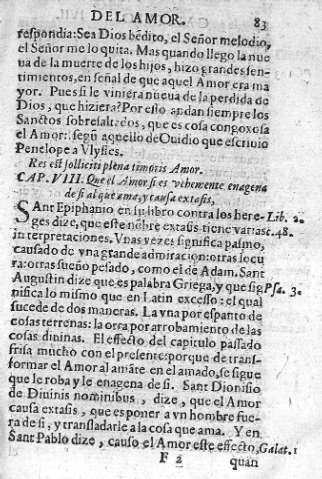 DEL AMOR. 83
respondia: Sea Dios bẽdito, el Señor melodio,
el Señor me lo quita. Mas quando llego la nue
ua de la muerte de los hijos, hizo grandes sen-
timientos, en señal de que aquel Amor era ma
yor. Pues si le viniera nueua de la perdida de
Dios, que hiziera? Por esto andan siempre los
Sanctos sobresaltados, que es cosa congoxosa
el Amor: segũ aquello de Ouidio que escriuio
Penelope a Vlysses.
Res est solliciti plena timoris Amor.
CAP. VIII. Que el Amor si es vehemente enagena
de si al que ama, y causa extasis,
Sant Epiphanio en su libro contra los here- Lib. 2.
ges dize, que este nõbre extasis tiene varias c. 48.
interpretaciones. Vnas vezes significa pasmo,
causado de vna grande admiracion: otras locu
ra: otras sueño pesado, como el de Adam. Sant
Augustin dize que es palabra Griega, y que sig Psa. 3.
nifica lo mismo que en Latin excesso: el qual
sucede de dos maneras. La vna por espanto de
cosas terrenas: la otra por arrobamiento de las
cosas diuinas. El effecto del capitulo passado
frisa mucho con el presente: porque de trans-
formar el Amor al amãte en el amado, se sigue
que le roba y le enagena de si. Sant Dionisio
de Diuinis nominibus, dize, que el Amor
causa extasis, que es poner a vn hombre fue-
ra de si, y trasladarle a la cosa que ama. Y en
Sant Pablo dize, causo el Amor este effecto, Galat. 1
F 2 quan